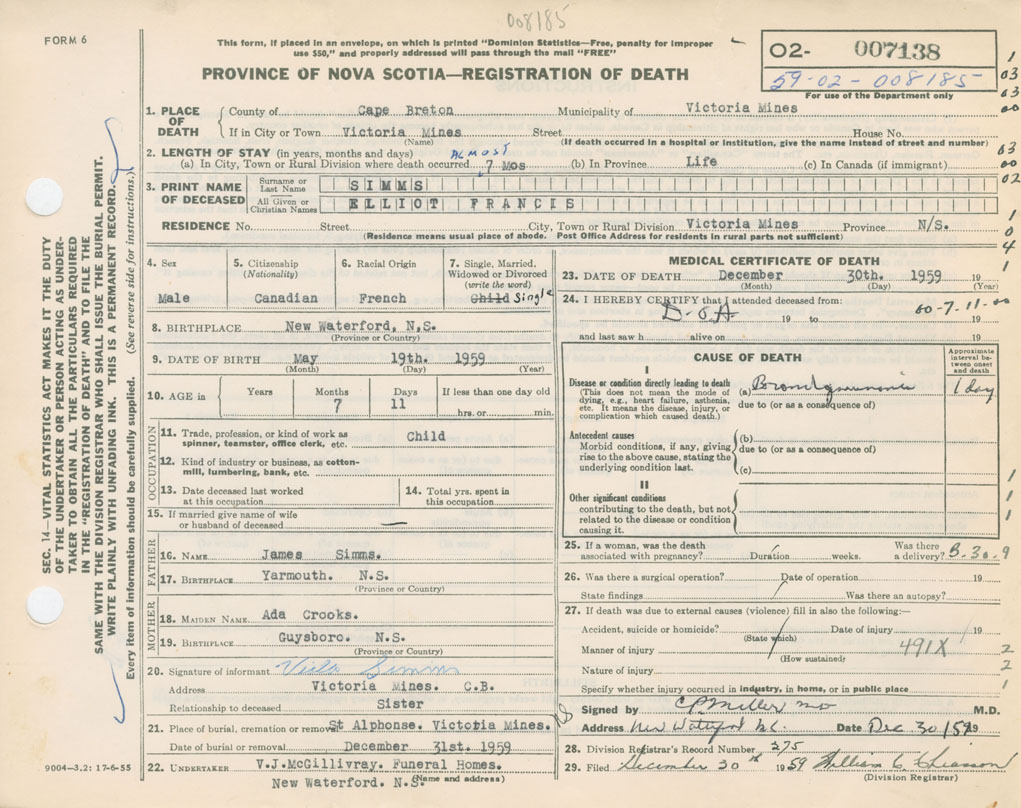 008185
FORM 6
This form, if placed in an envelope, on which is printed "Dominion Statistics—Free, penalty for improper
use $50," and properly addressed will pass through the mail "FREE"
PROVINCE OF NOVA SCOTIA—REGISTRATION OF DEATH
02- 007138
59-02-008185
For use of the Department only
1. PLACE OF DEATH
County of Cape Breton Municipality of Victoria Mines
If in City or Town Victoria Mines Street House No.
(Name) (If death occurred in a hospital or institution, give the name instead of street and number)
2. LENGTH OF STAY (in years, months and days) ALMOST
(a) In City, Town or Rural Division where death occurred 7 Mos (b) In Province Life (c) In Canada (if immigrant)
3. PRINT NAME OF DECEASED
Surname or Last Name SIMMS
All Given or Christian Names ELLIOT FRANCIS
RESIDENCE No. Street City, Town or Rural Division Victoria Mines Province N/S.
(Residence means usual place of abode. Post Office Address for residents in rural parts not sufficient)
4. Sex
Male
5. Citizenship
(Nationality)
Canadian
6. Racial Origin
French
7. Single, Married,
Widowed or Divorced
(write the word)
Child Single
8. BIRTHPLACE New Waterford, N,S.
(Province or Country)
9. DATE OF BIRTH May 19th. 1959
(Month) (Day) (Year)
10. AGE in Years Months Days If less than one day old
7 11 hrs. or min.
OCCUPATION
11. Trade, profession, or kind of work as Child
spinner, teamster, office clerk, etc.
12. Kind of industry or business, as cotton-
mill, lumbering, bank, etc.
13. Date deceased last worked
at this occupation
14. Total yrs. spent in
this occupation
15. If married give name of wife
or husband of deceased —
FATHER
16. NAME James Simms.
17. BIRTHPLACE Yarmouth. N.S.
(Province or Country)
MOTHER
18. MAIDEN NAME Ada Crooks.
19. BIRTHPLACE Guysboro. N.S.
(Province or Country)
20. Signature of informant Viola Simms
Address Victoria Mines. C.B.
Relationship to deceased Sister
21. Place of burial, cremation or removal St Alphonse. Victoria Mines. NS
Date of burial or removal December 31st. 1959
22. UNDERTAKER V.J.McGillivray. Funeral Homes.
(Name and address)
New Waterford. N.S.
MEDICAL CERTIFICATE OF DEATH
23. DATE OF DEATH December 30th. 1959 19
(Month) (Day) (Year)
24. I HEREBY CERTIFY that I attended deceased from: 00-7-11-00
D-O A 19 to 19
and last saw h alive on 19
CAUSE OF DEATH
Approximate
interval be-
tween onset
and death
I
Disease or condition directly leading to death
(This does not mean the mode of
dying, e.g., heart failure, asthenia,
etc. It means the disease, injury, or
complication which caused death.)
(a) 1 day
due to (or as a consequence of)
Antecedent causes
Morbid conditions, if any, giving
rise to the above cause, stating the
underlying condition last.
(b)
due to (or as a consequence of)
(c)
II
Other significant conditions
contributing to the death, but not
related to the disease or condition
causing it.
25. If a woman, was the death
associated with pregnancy? Duration weeks. Was there
a delivery? B.30.9
26. Was there a surgical operation? Date of operation 19
State findings Was there an autopsy?
27. If death was due to external causes (violence) fill in also the following:—
Accident, suicide or homicide? Date of injury 19
(State which)
Manner of injury 491X
(How sustained)
Nature of injury
Specify whether injury occurred in industry, in home, or in public place
Signed by C P Miller MD M.D.
Address New Waterford N.S. Date Dec 30/59 19
28. Division Registrar's Record Number 275
29. Filed December 30th 1959 William C. Chiasson
(Division Registrar)
SEC. 14—VITAL STATISTICS ACT MAKES IT THE DUTY
OF THE UNDERTAKER OR PERSON ACTING AS UNDER-
TAKER TO OBTAIN ALL THE PARTICULARS REQUIRED
IN THE "REGISTRATION OF DEATH" AND TO FILE THE
SAME WITH THE DIVISION REGISTRAR WHO SHALL ISSUE THE BURIAL PERMIT.
WRITE PLAINLY WITH UNFADING INK. THIS IS A PERMANENT RECORD.
Every item of information should be carefully supplied. (See reverse side for instructions.)
9004—3.2: 17-6-55
1
03
63
00
63
00
02
1
0
4
1
1
1
1
2
2
1